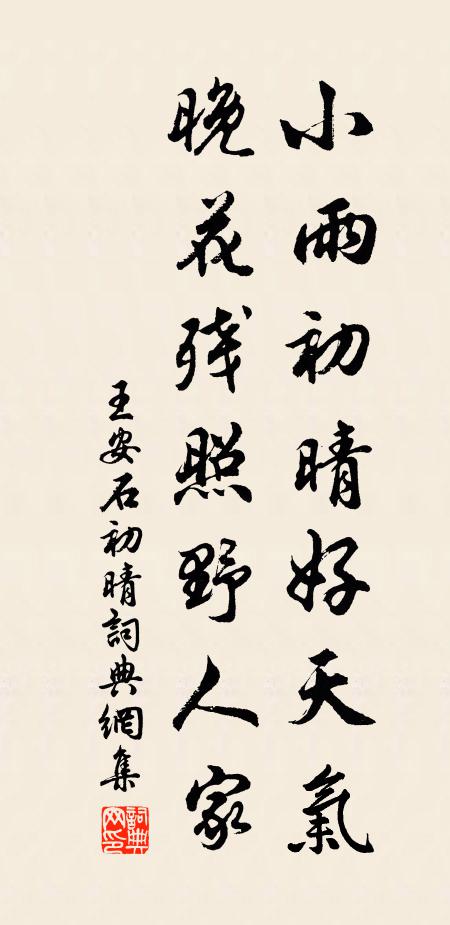 小雨初晴好天氣
晚花残照野人家
王安石初晴詞典網集
詞典网印